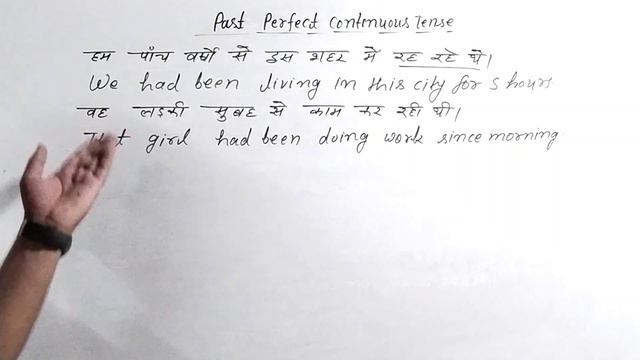 Past Perfect Continuous Tense
हम पाँच वर्षों से इस शहर में रह रहे थे।
We had been living in this city for 5 hours.
वह लड़की सुबह से काम कर रही थी।
girl had been doing work since morning.